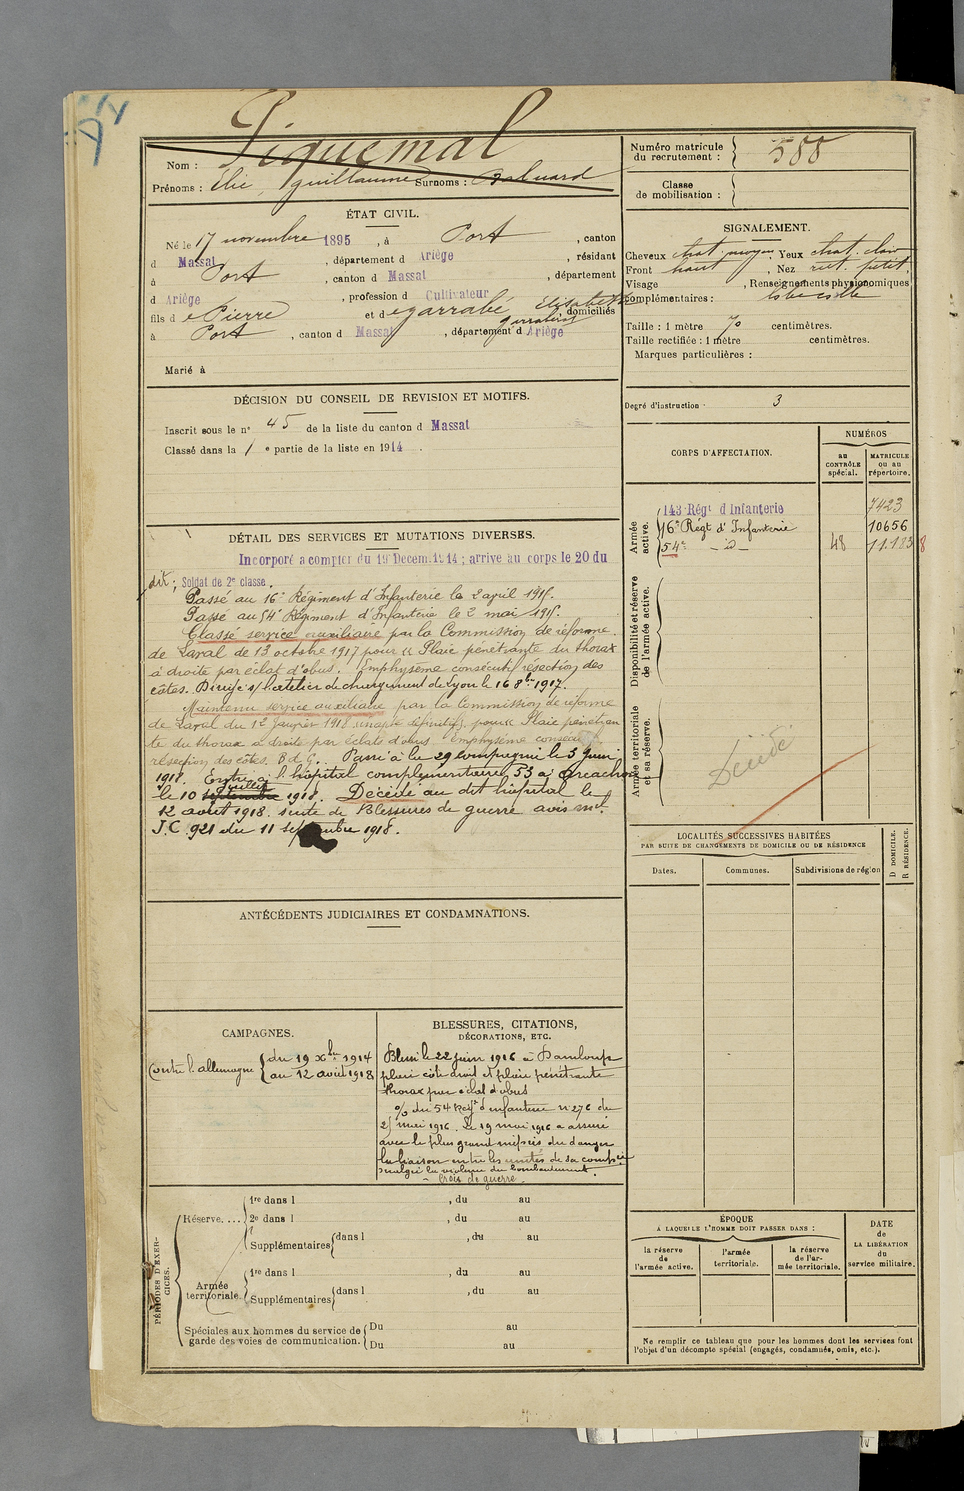 Piquemal
Nom :
Prénoms : Elie, guillaume Surnoms :
Numéro matricule
du recrutement : 588
Classe
de mobilisation :
ÉTAT CIVIL.
Né le 17 novembre 1895, à Port, canton
d Massat, département d Ariège, résidant
à Port, canton d Massat, département
d Ariège, profession d Cultivateur
fils de Pierre et de garrabé Elisabeth, domiciliés
à Port, canton d Massat, département d Ariège
Marié à
SIGNALEMENT.
Cheveux chat. moyen Yeux chat. clair
Front haut, Nez rect. petit.
Visage , Renseignements physionomiques
complémentaires :
Taille : 1 mètre 70 centimètres.
Taille rectifiée : 1 mètre centimètres.
Marques particulières :
Degré d'instruction 3
DÉCISION DU CONSEIL DE REVISION ET MOTIFS.
Inscrit sous le n° 45 de la liste du canton d Massat
Classé dans la 1 e partie de la liste en 1914 .
DÉTAIL DES SERVICES ET MUTATIONS DIVERSES.
Incorporé a compter du 19 Décem. 1914 ; arrive au corps le 20 du
dit ; Soldat de 2e classe.
Passé au 16e Régiment d'Infanterie le 2 avril 1915.
Passé au 54e Régiment d'Infanterie le 2 mai 1915.
Classé service auxiliaire par la Commission de réforme
de Laval de 13 octobre 1917 pour « Plaie pénétrante du thorax
à droite par éclat d'obus. Emphysème consécutif résection des
côtes. Dirigé s/ l'atelier de chargement de Lyon le 16 8bre 1917.
Maintenu service auxiliaire par la Commission de réforme
de Laval du 12 janvier 1918 inapte définitif, pour « Plaie pénétran
te du thorax à droite par éclats d'obus Emphysème consécutif
résection des côtes. B d G. Passé à la 29 compagnie le 3 juin
1918. Entré à l'hôpital complémentaire 53 à Arcachon
juillet
le 10 septembre 1918. Décédé au dit hôpital le
12 août 1918. suite de Blessures de guerre avis mel
J.C. 921 du 11 septembre 1918.
CORPS D'AFFECTATION.
NUMÉROS
au
CONTRÔLE
spécial.
MATRICULE
ou au
répertoire.
Armée
active.
143e Régt d'Infanterie 7423
16e Régt d'Infanterie 10656
54e - id - 48 11183
Disponibilité et réserve
de l'armée active.
Armée territoriale
et sa réserve.
Décédé
LOCALITÉS SUCCESSIVES HABITÉES
PAR SUITE DE CHANGEMENTS DE DOMICILE OU DE RÉSIDENCE
D DOMICILE.
R RÉSIDENCE.
Dates.
Communes.
Subdivisions de région
ANTÉCÉDENTS JUDICIAIRES ET CONDAMNATIONS.
CAMPAGNES.
Contre l'allemagne du 19 Xbre 1914
au 12 août 1918
BLESSURES, CITATIONS,
DÉCORATIONS, ETC.
Blessé le 22 juin 1916 à Damloup
plaie côté droit et plaie pénétrante
thorax par éclat d'obus
% du 54 Regt d'infanterie n° 276 du
25 mai 1916. Le 19 mai 1916 a assuré
avec le plus grand mépris du danger
la liaison entre les unités de sa compie
malgré la violence du bombardement.
- Croix de guerre -
PÉRIODES D'EXER-
CICES.
Réserve....
1re dans l , du au
2e dans l , du au
Supplémentaires dans l , du au
Armée
territoriale.
1re dans l , du au
Supplémentaires dans l , du au
Spéciales aux hommes du service de
garde des voies de communication.
Du au
Du au
ÉPOQUE
À LAQUELLE L'HOMME DOIT PASSER DANS :
la réserve
de
l'armée active.
l'armée
territoriale.
la réserve
de l'ar-
mée territoriale.
DATE
de
LA LIBÉRATION
du
service militaire.
Ne remplir ce tableau que pour les hommes dont les services font
l'objet d'un décompte spécial (engagés, condamnés, omis, etc.).